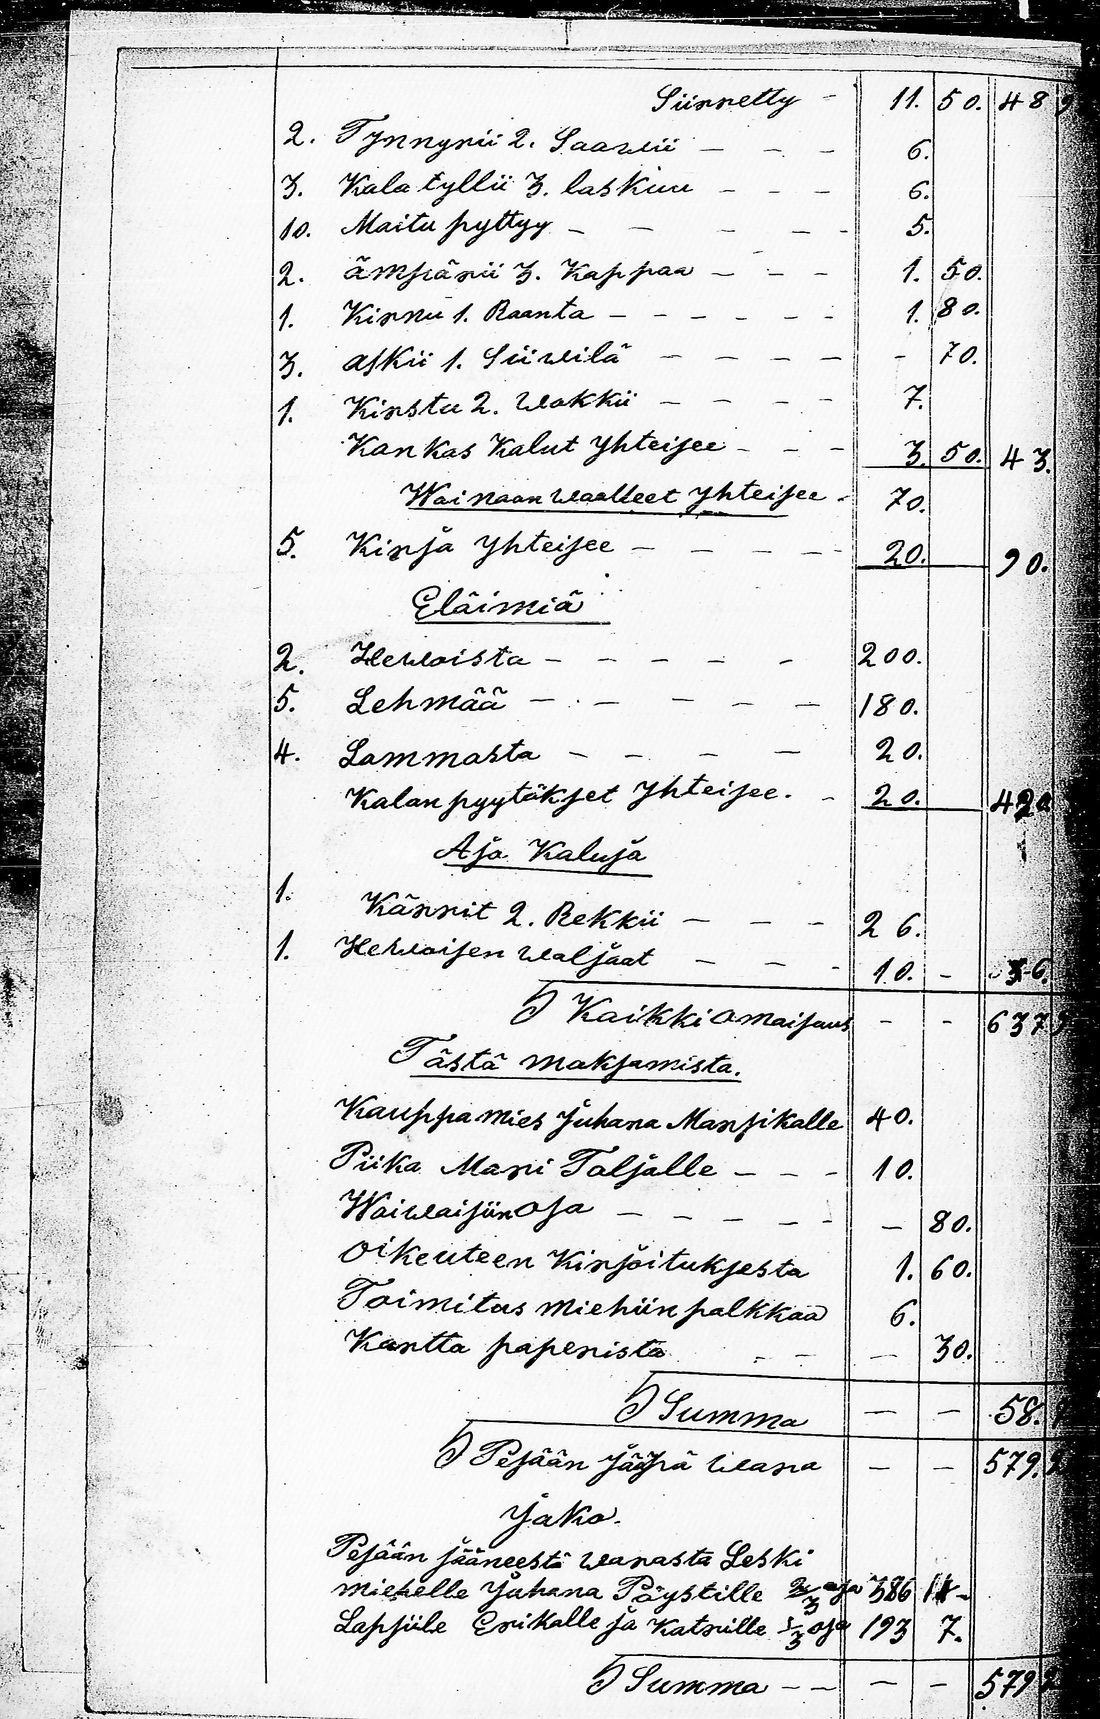 Siirretty - 11. 50. 48 9
2. Tynnyrii 2. Saawii - - - 6.
3. Kala tyllii 3. laskuu - - - 6.
10. Maitu pyttyy - - - - - 5.
2. ämpärii 3. Kappaa - - - 1. 50.
1. Kirnu 1. Raanta - - - - - - 1. 80.
3. askii 1. Siiwilä - - - - - 70.
1. Kirstu 2. wakkii - - - - 7.
Kankas Kalut Yhteisee - - - 3. 50. 43.
Wainaan waatteet yhteisee - 70.
5. Kirja Yhteisee - - - - 20. 90.
Eläimiä
2. Hewoista - - - - - 200.
5. Lehmää - - - - - 180.
4. Lammasta - - - - 20.
Kalan pyytökset Yhteisee. - 20. 420
Ajo Kaluja
1. Kärrit 2. Rekkii - - - 26.
1. Hewoisen waljaat - - - 10. - 36.
Kaikki omaisuus - - 637
Tästä maksamista.
Kauppa mies Juhana Mansikalle 40.
Piika Mari Taljalle - - - 10.
Waiwaisiin osa - - - - - - 80.
Oikeuteen Kirjoituksesta 1. 60.
Toimitus miehiin palkkaa 6.
Kartta paperista - - - 30.
Summa - - 58.
Pesään jääpä wara - - 579.
Jako.
Pesään jääneestä warasta Leski
miehelle Juhana Pöystille 2/3 osa 386 14 -
Lapsiile Erikalle ja Katriille 1/3 osa 193 7.
Summa - - - - 579